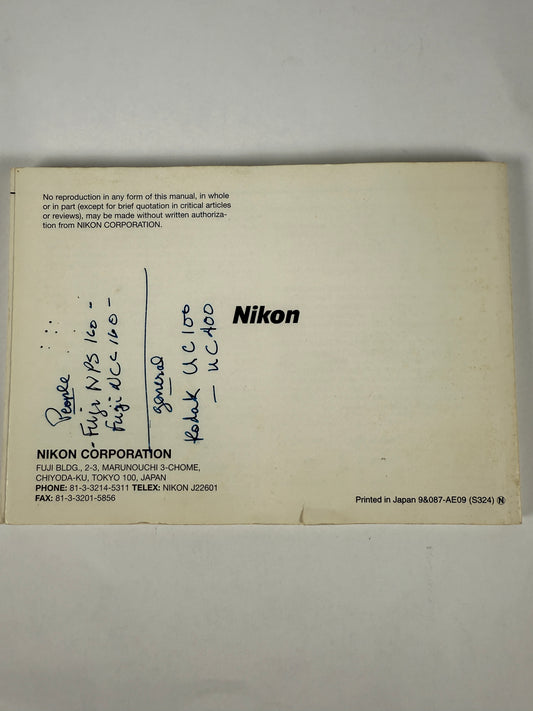 No reproduction in any form of this manual, in whole
or in part (except for brief quotation in critical articles
or reviews), may be made without written authoriza-
tion from NIKON CORPORATION.
Nikon
People
- Fuji NPS 160 -
Fuji NCC 160 -
general
Kodak UC 100
- UC 400
NIKON CORPORATION
FUJI BLDG., 2-3, MARUNOUCHI 3-CHOME,
CHIYODA-KU, TOKYO 100, JAPAN
PHONE: 81-3-3214-5311 TELEX: NIKON J22601
FAX: 81-3-3201-5856
Printed in Japan 9&087-AE09 (S324) N